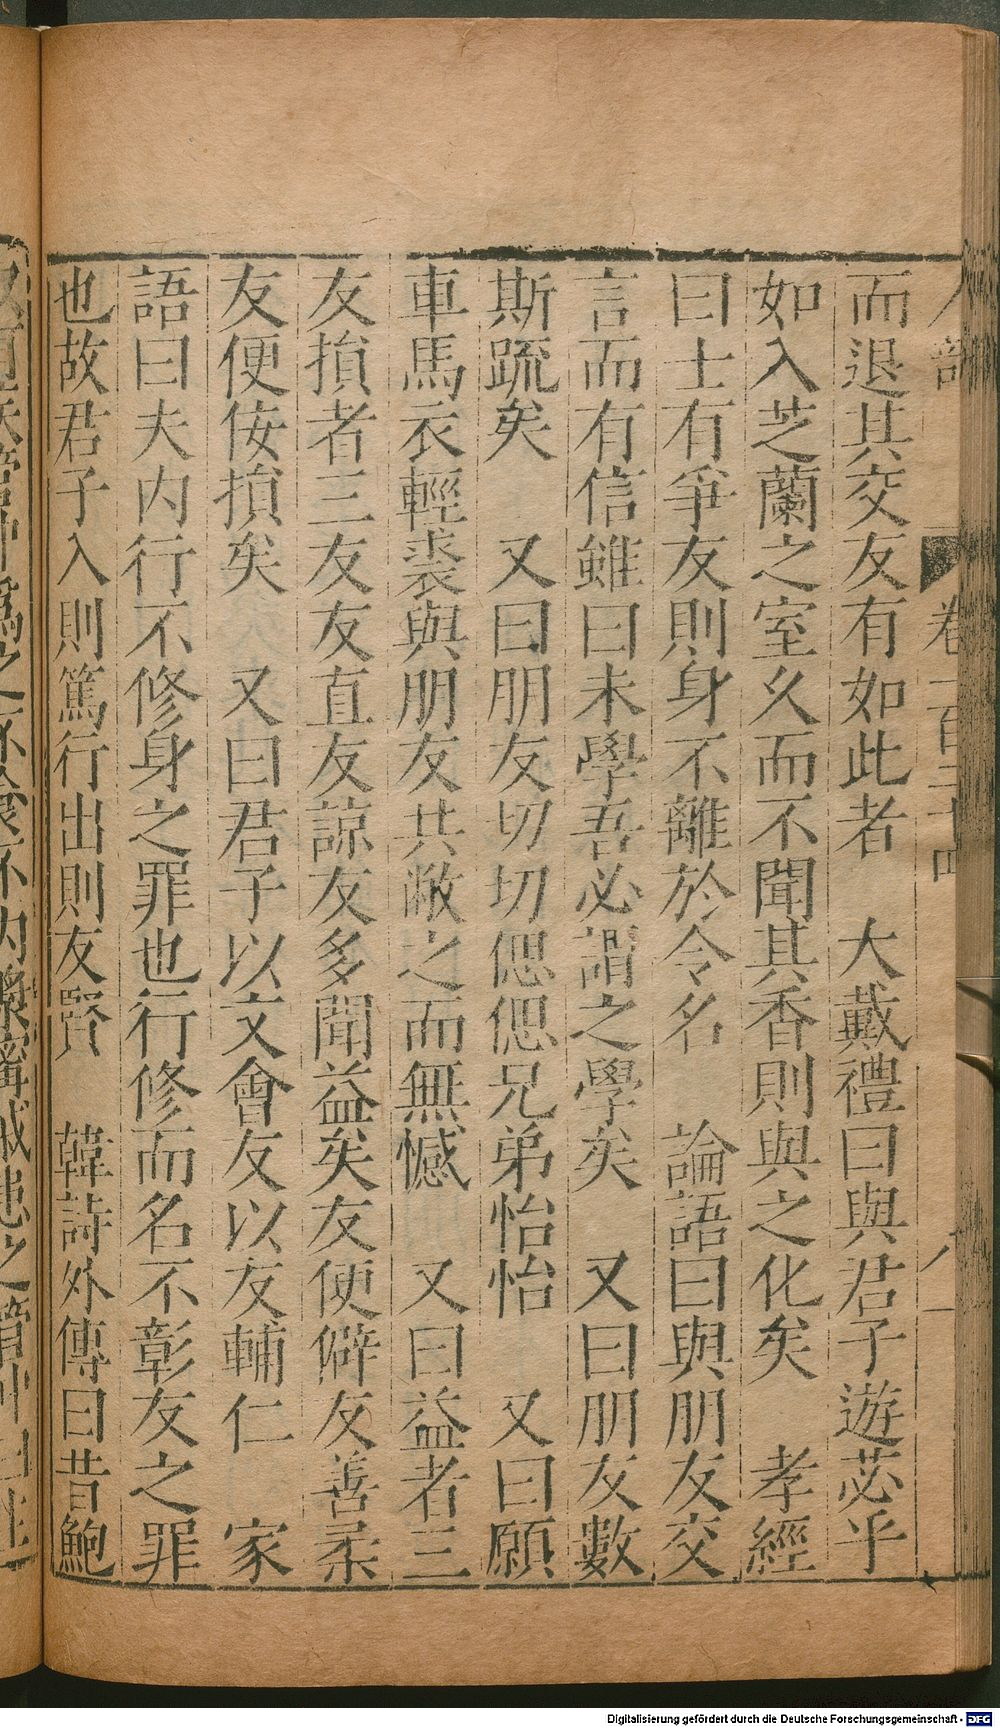 人部 卷一百三十四 八
而退其交友有如此者 大戴禮曰與君子遊苾乎
如入芝蘭之室久而不聞其香則與之化矣 孝經
曰士有爭友則身不離於令名 論語曰與朋友交
言而有信雖曰未學吾必謂之學矣 又曰朋友數
斯䟽矣 又曰朋友切切偲偲兄弟怡怡 又曰願
車馬衣輕裘與朋友共敝之而無憾 又曰益者三
友損者三友友直友諒友多聞益矣友便僻友善柔
友便佞損矣 又曰君子以文會友以友輔仁 家
語曰夫內行不修身之罪也行修而名不彰友之罪
也故君子入則篤行出則友賢 韓詩外傳曰昔鮑
Digitalisierung gefördert durch die Deutsche Forschungsgemeinschaft - DFG